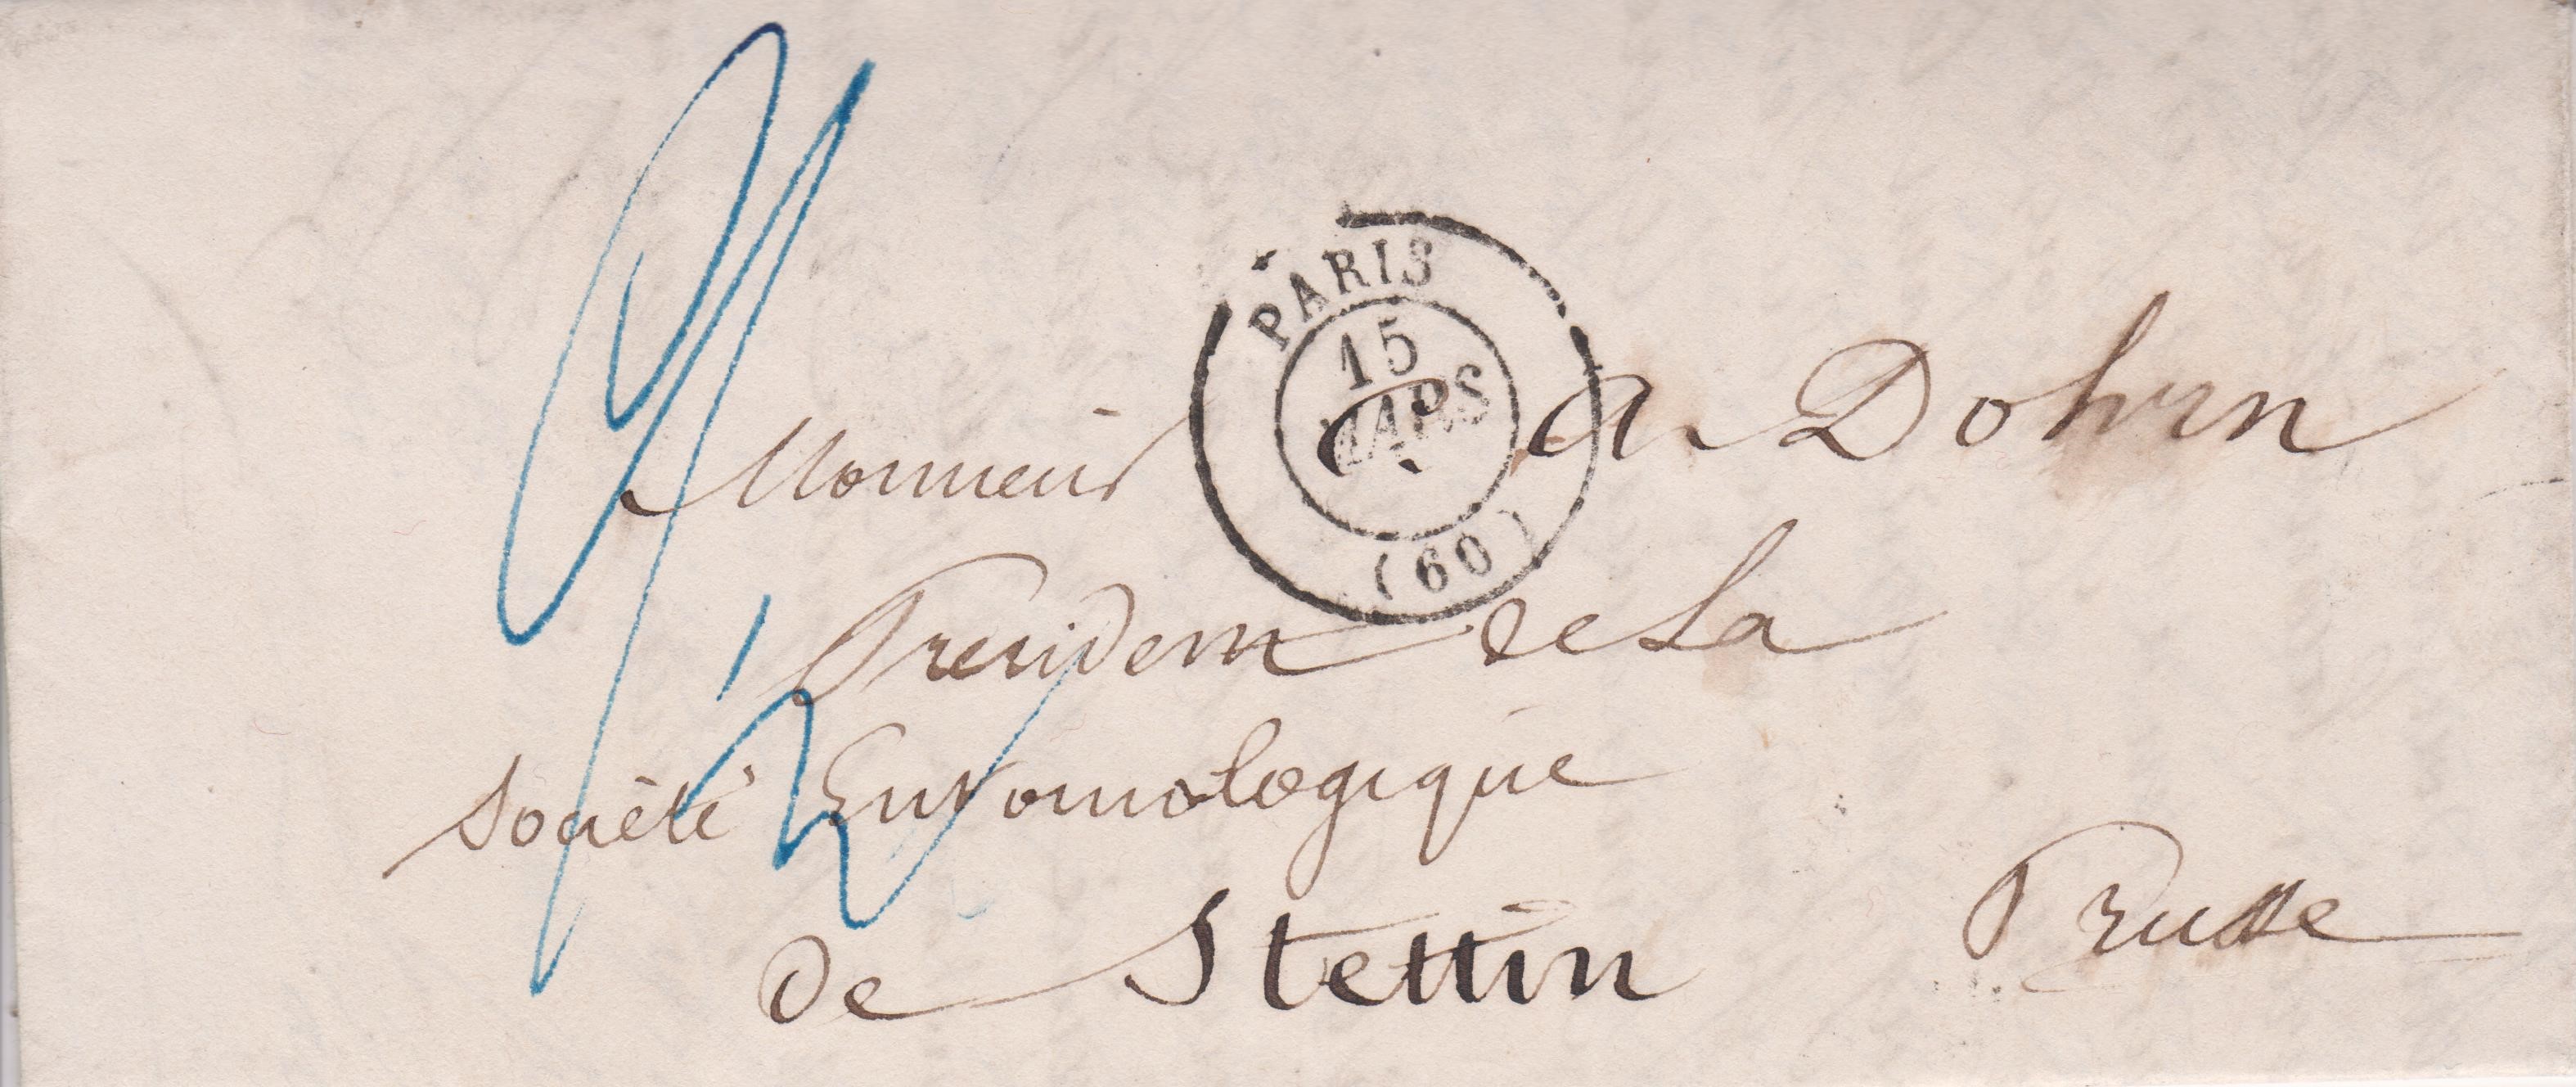 PARIS
15
MARS
(60)
Monsieur C. A. Dohrn
President de la
Société Entomologique
de Stettin
Prusse